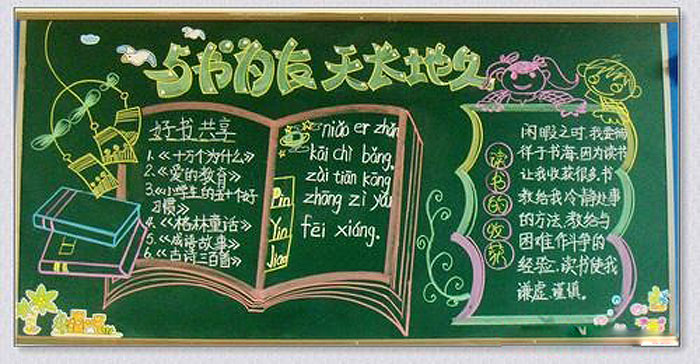 与书为友 天长地久
好书共享
1.《十万个为什么》
2.《爱的教育》
3.《小学生的五十个好
习惯》
4.《格林童话》
5.《成语故事》
6.《古诗三百首》
niǎo er zhǎn
kāi chì bǎng,
zài tiān kōng
zhōng zì yóu
fēi xiáng.
Pin
Yin
读书的收获
闲暇之时,我会徜
徉于书海,因为读书
让我收获很多,书
教给我冷静处事
的方法,教给与
困难作斗争的
经验,读书使我
谦虚、谨慎。